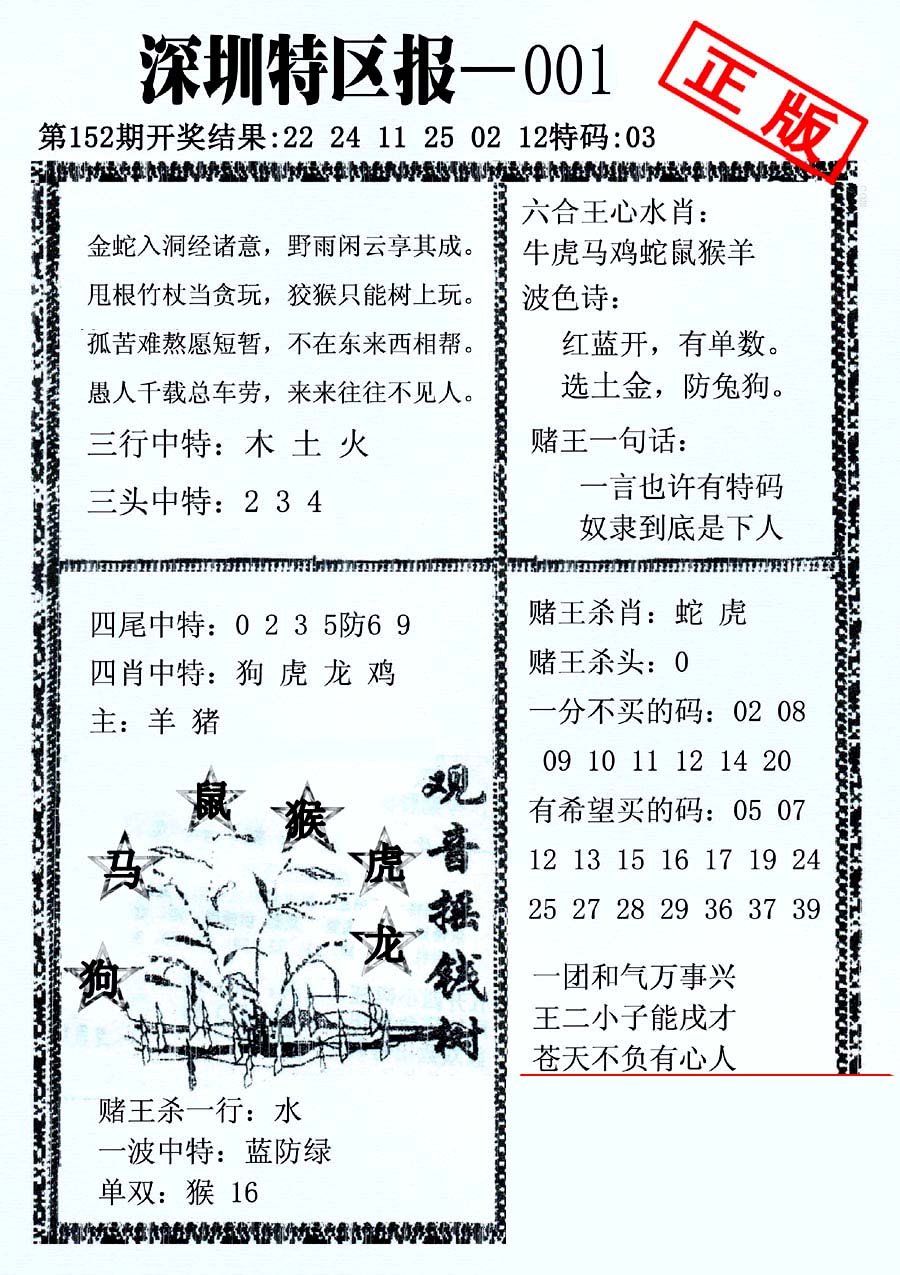 深圳特区报—001
正版
第152期开奖结果:22 24 11 25 02 12特码:03
金蛇入洞经诸意，野雨闲云享其成。
甩根竹杖当贪玩，狡猴只能树上玩。
孤苦难熬愿短暂，不在东来西相帮。
愚人千载总车劳，来来往往不见人。
三行中特：木 土 火
三头中特：2 3 4
六合王心水肖：
牛虎马鸡蛇鼠猴羊
波色诗：
红蓝开，有单数。
选土金，防兔狗。
赌王一句话：
一言也许有特码
奴隶到底是下人
四尾中特：0 2 3 5防6 9
四肖中特：狗 虎 龙 鸡
主：羊 猪
鼠
猴
马
虎
龙
狗
观音摇钱树
赌王杀一行：水
一波中特：蓝防绿
单双：猴 16
赌王杀肖：蛇 虎
赌王杀头：0
一分不买的码：02 08
09 10 11 12 14 20
有希望买的码：05 07
12 13 15 16 17 19 24
25 27 28 29 36 37 39
一团和气万事兴
王二小子能戌才
苍天不负有心人